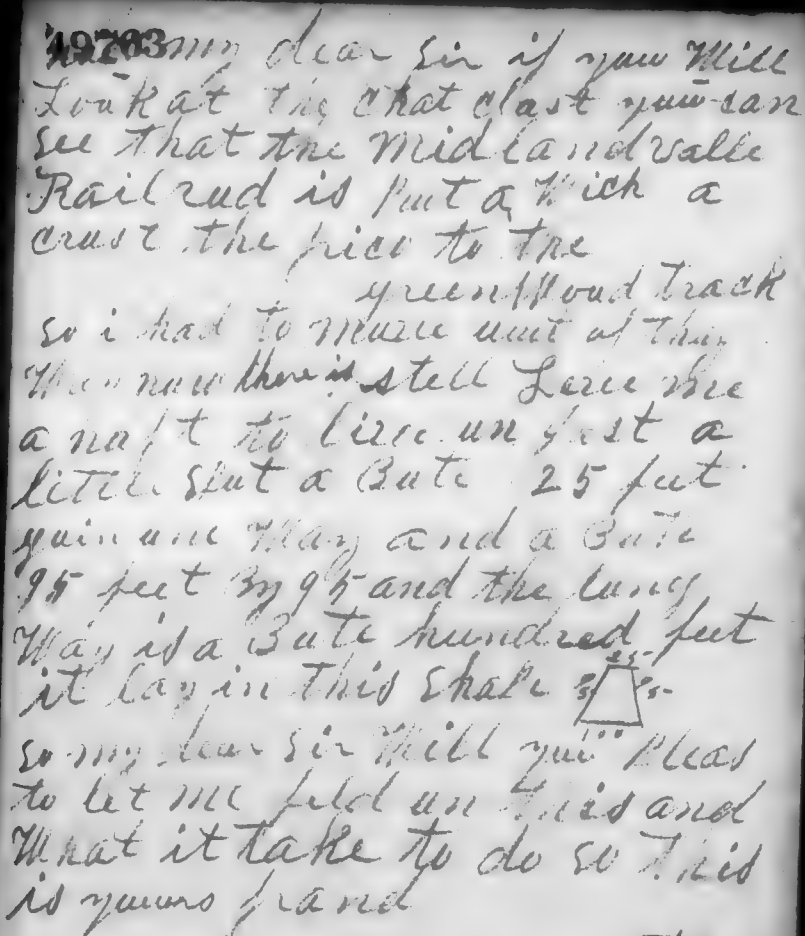 49763 my dear sir if yuw Will
Look at the Chat clost yuw can
See that the Midland valle
Railrud is Put a Wich a
crust the pice to the
greenWoud track
so i had to muve uut of the
now there is stell Leve me
a nuft to live un just a
little Slut a Bute 25 feet
guin une Way and a Bute
95 feet By 95 and the lung
Way is a Bute hundred feet
it lay in this Shape
25
95 95
100
so my dear Sir Will yuw Pleas
to let me feld un this and
What it take to do so This
is yuuurs frand